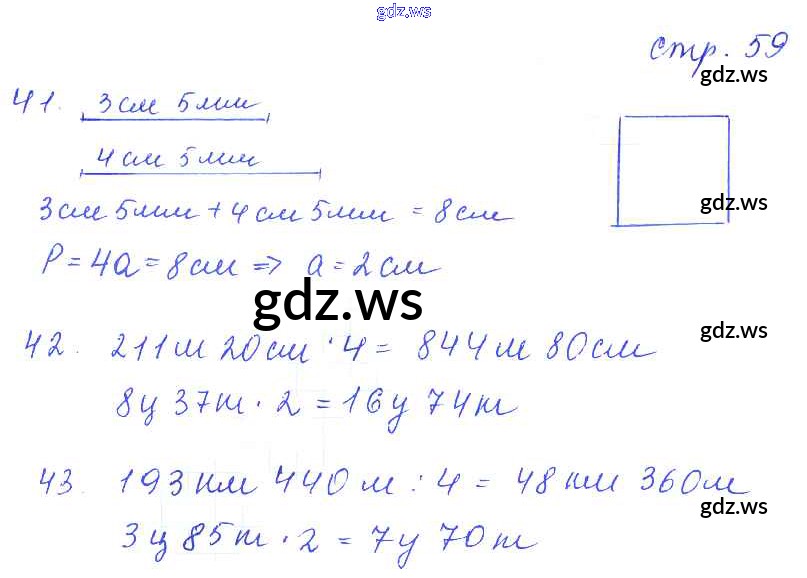 gdz.ws
стр. 59
gdz.ws
41. 3см 5мм
4см 5мм
3см 5мм + 4см 5мм = 8см
gdz.ws
P = 4a = 8см => a = 2см
gdz.ws
42. 211м 20см · 4 = 844м 80см
gdz.ws
8ц 37т · 2 = 16ц 74т
43. 193км 440м : 4 = 48км 360м
gdz.ws
3ц 85т · 2 = 7ц 70т